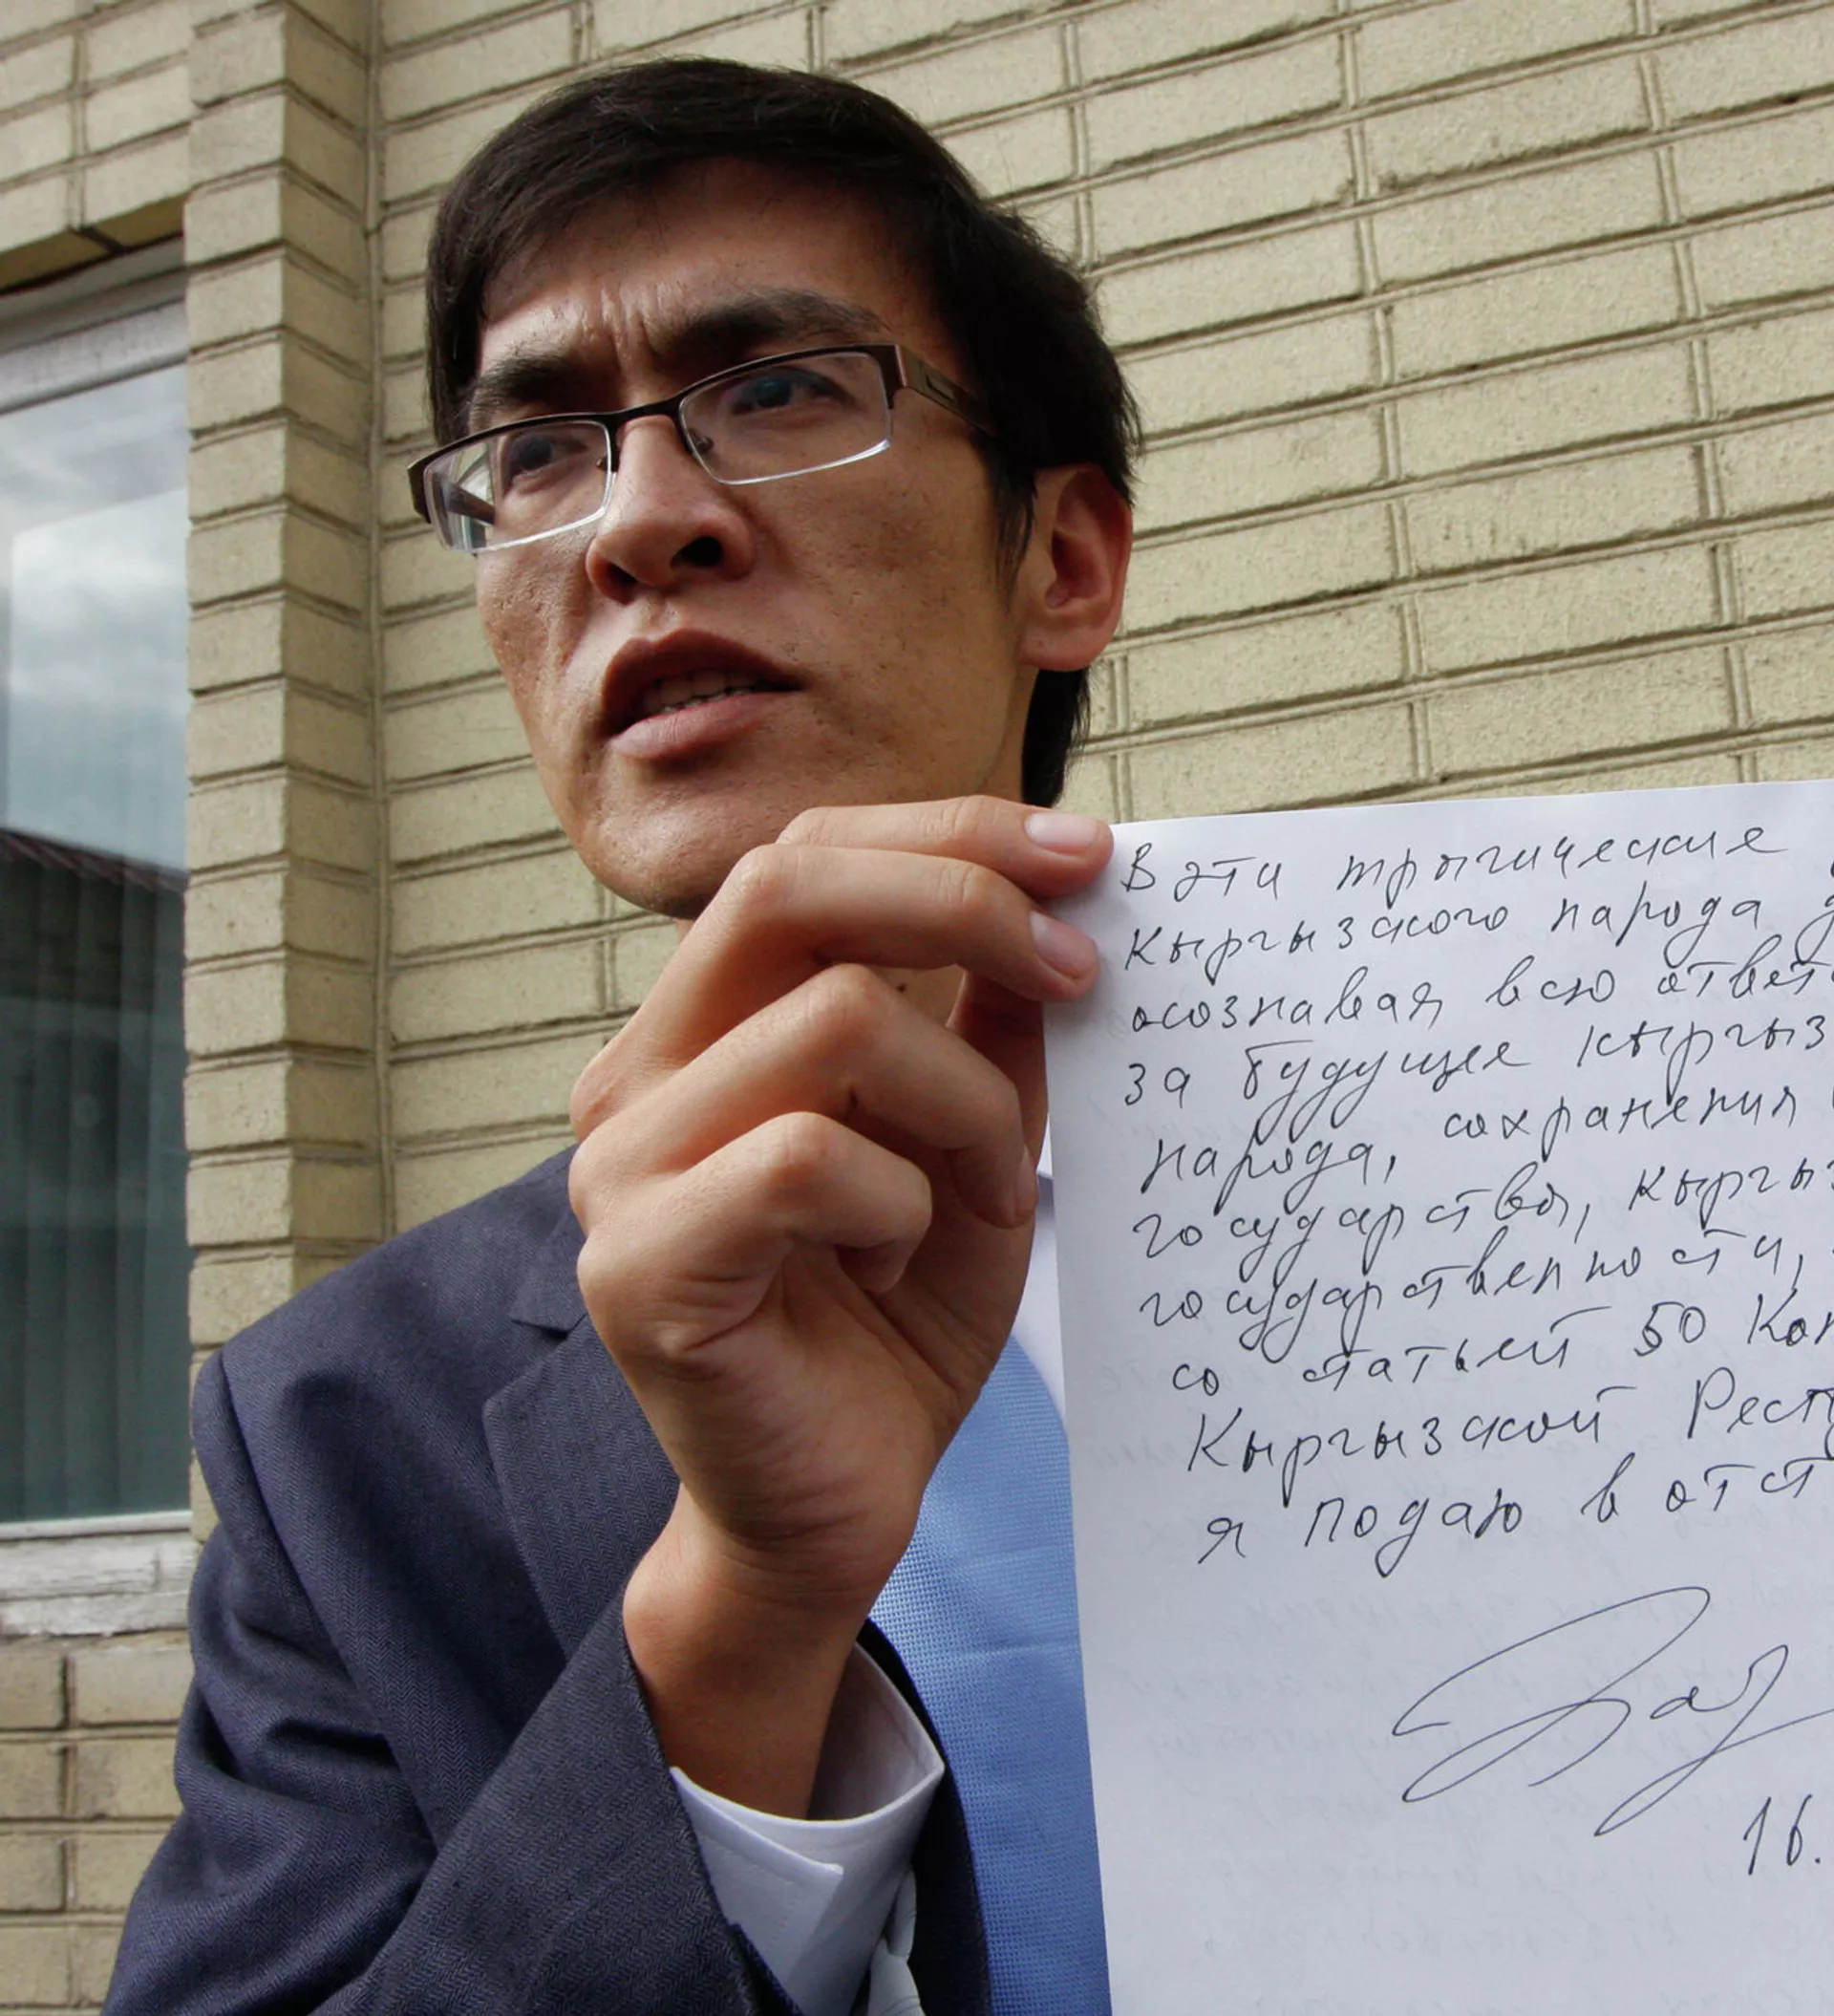 В эти трыгические
Кыргызского народа
осознавая всю ответс
за будущее кыргыз
народа, сохранения
государства, кыргыз
государственности,
со статьей 50 Кон
Кыргызской Респ
я подаю в отст
16.